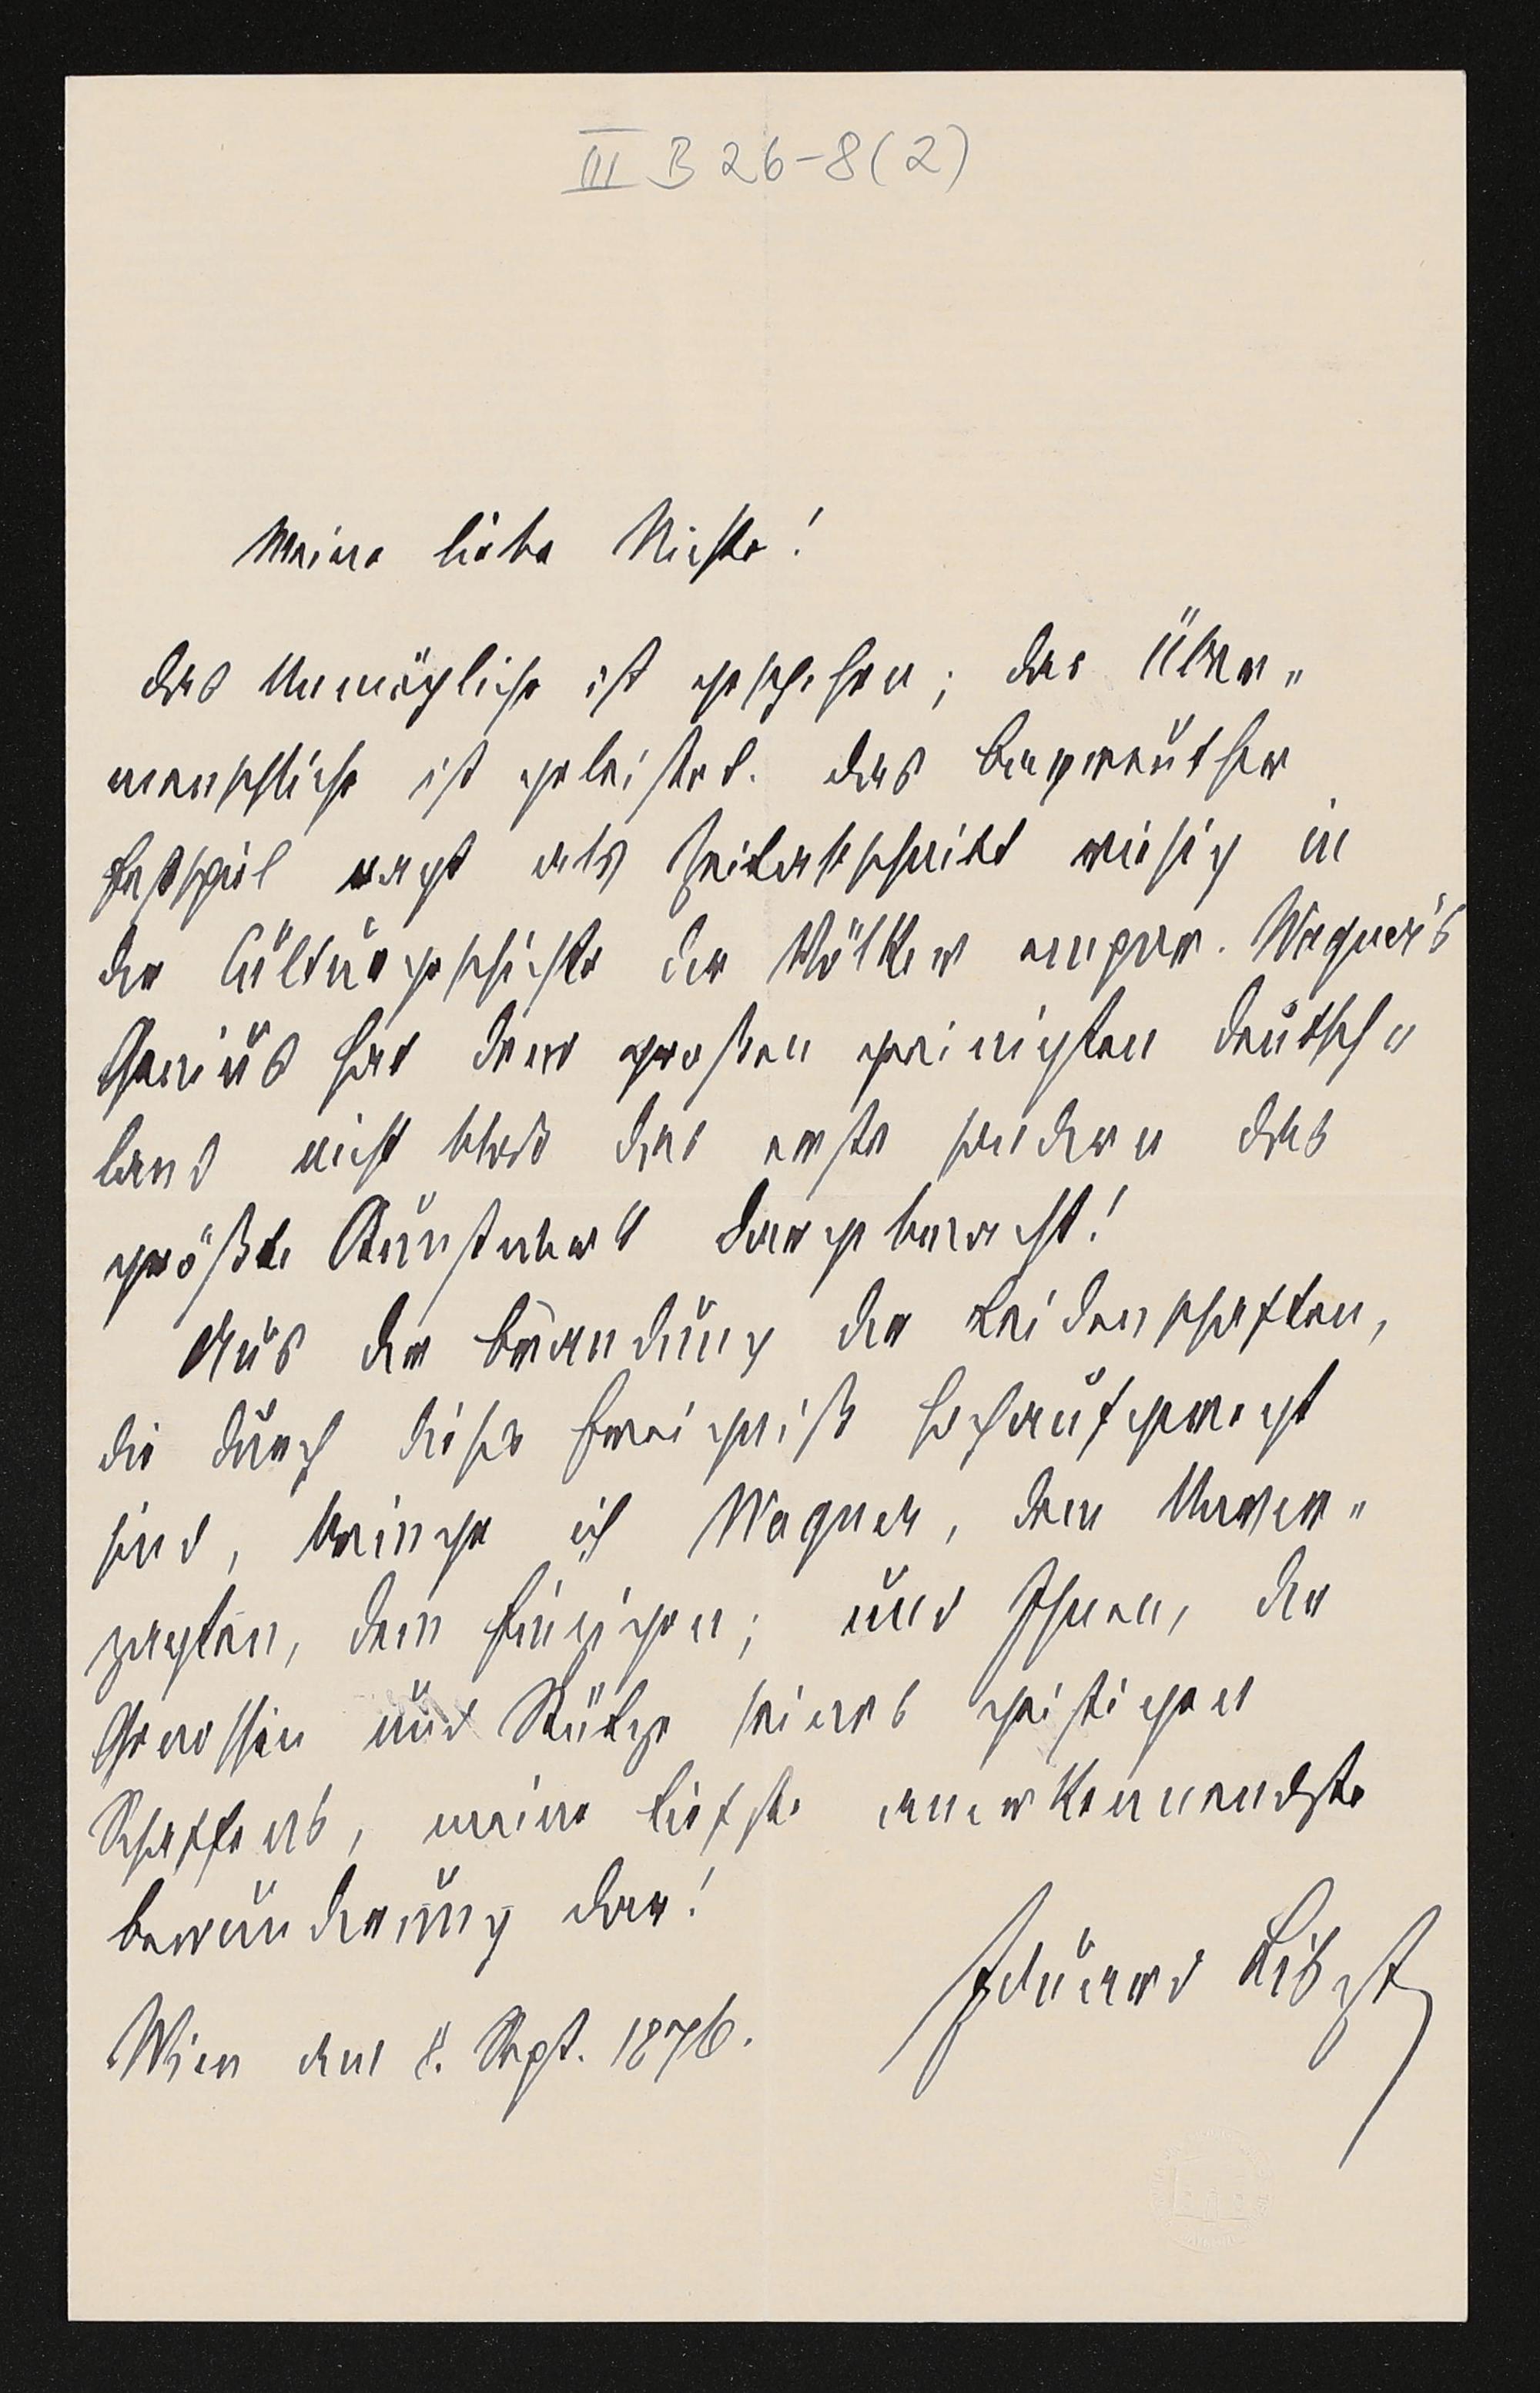 III B 26-8(2)
Meine liebe Nichte!
das Unmögliche ist geschehen; das Über„
menschliche ist geleistet. das Bayreuther
Festspiel ragt als Zeitabschnitt riesig in
der Culturgeschichte der Völker empor. Wagner's
Genius hat dem großen geeinigten Deutsch„
land nicht bloß das erste sondern das
größte Kunstwerk dargebracht!
Aus der Brandung der Leidenschaften,
die durch dieses Ereigniß hochaufgeregt
sind, bringe ich Wagner, dem Unver„
zagten, dem Einzigen; und Ihnen, der
Genossin und Stütze seines geistigen
Schaffens, meine tiefste anerkennendste
Bewunderung dar!
Eduard Liszt
Wien am 8. Sept. 1876.